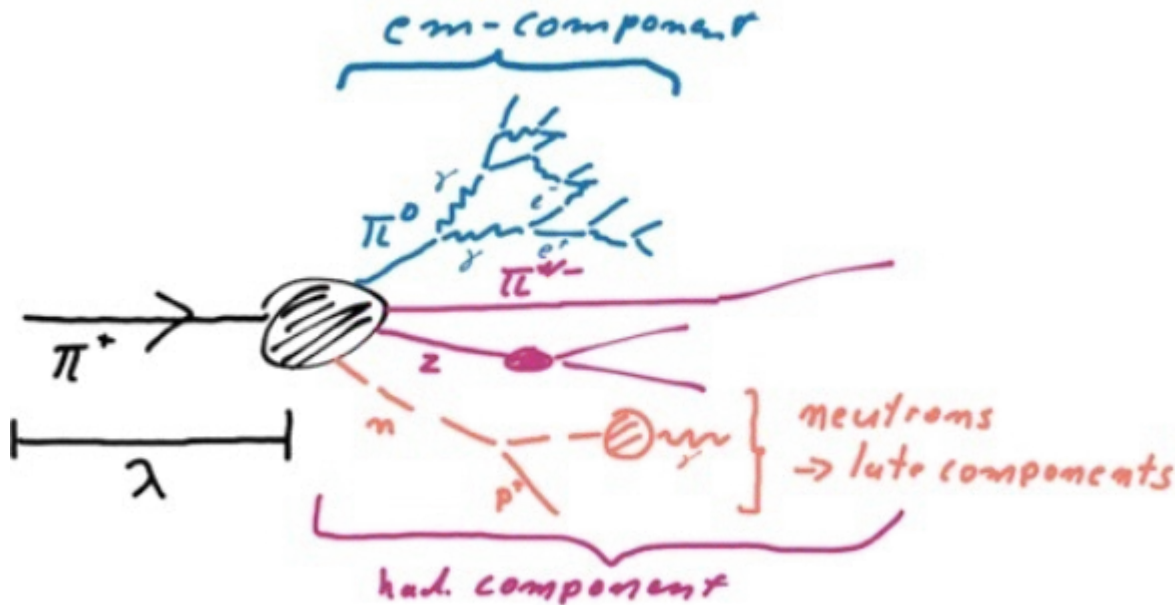 em-component
γ
π⁰
γ
e⁻
e⁺
π⁺
z
n
γ
p⁺
λ
neutrons
→ late components
had. component